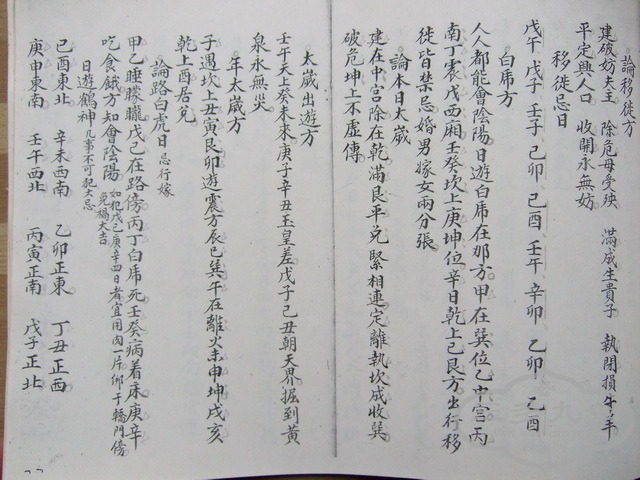 論移徙方
建破妨夫主 除危母受殃 滿成生貴子 執閉損牛羊
平定興人口 收開永無妨
移徙忌日
戊午 戊子 壬子 己卯 己酉 壬午 辛卯 乙卯 己酉
白虎方
人人都能會陰陽日遊白虎在那方甲在巽位乙中宮丙
南丁震戊西廂壬癸坎上庚坤位辛日乾上己艮方出行移
徙皆禁忌婚男嫁女兩分張
論本日太歲
建在中宮除在乾滿艮平兌緊相連定離執坎成收巽
破危坤上不虛傳
太歲出遊方
壬午天上癸未來庚子辛丑玉皇差戊子己丑朝天界掘到黃
泉永無災
年太歲方
子遇坎上丑寅艮卯遊震方辰巳巽午在離火未申坤戌亥
乾上酉居兌
論路白虎日 忌行嫁
甲乙睡朦朧戊己在路傍丙丁白虎死壬癸病着床庚辛
吃食餓方知會陰陽 如犯戊己庚辛四日者宜用肉一片綁于轎門傍
免禍大吉
日遊鶴神 凡事不可犯大忌
己酉東北 辛未西南 乙卯正東 丁丑正西
庚申東南 壬午西北 丙寅正南 戊子正北